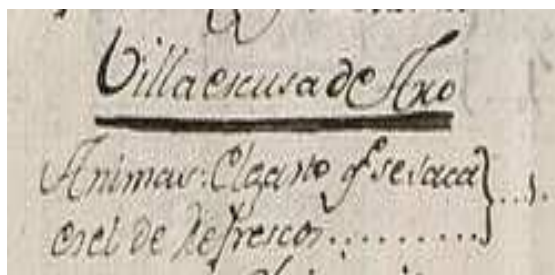 Villaescusa de Axo
Animas: El gasto q.e se saca
es el de Refrescos